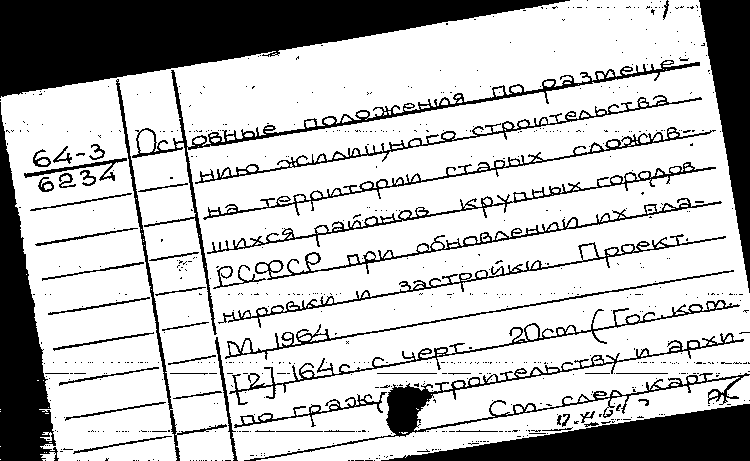 64-3
6234
Основные положения по размеще-
нию жилищного строительства
на территории старых сложив-
шихся районов крупных городов
РСФСР при обновлении их пла-
нировки и застройки. Проект.
М., 1964.
[2], 164 с. с черт. 20 см. (Гос. ком.
по граж строительству и архи-
См. след. карт.